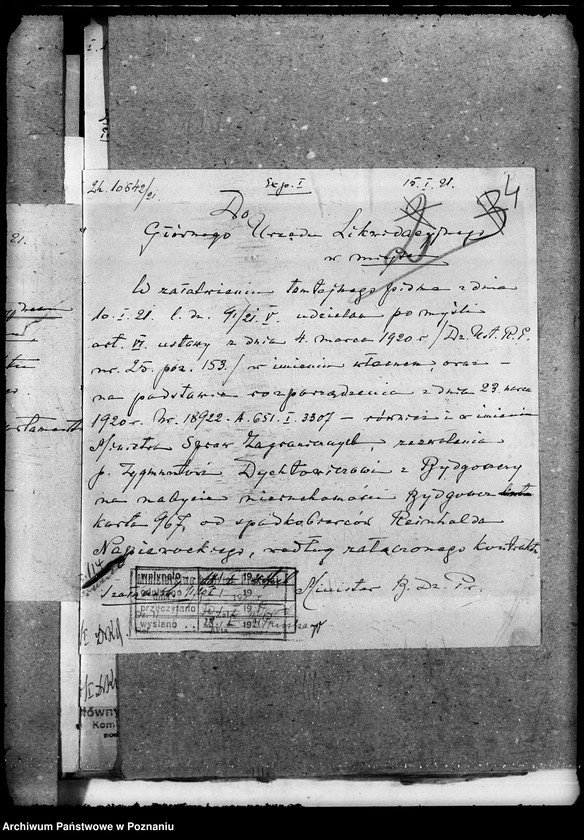 Lh. 10642/21. Exp. I 15. I. 21.
4
Do
Głównego Urzędu Likwidacyjnego
w miejscu
W załatwieniu tamtejszego pisma z dnia
10. I. 21. l. dn. 91/21. V. udzielam po myśli
art. VI. ustawy z dnia 4. marca 1920 r. /Dz. Ust. R. P.
nr. 25. poz. 153./ w imieniu własnem, oraz –
na podstawie rozporządzenia z dnia 23. marca
1920 r. Nr. 18922. A. 651. I. 3307 – również i w imieniu
Ministra Spraw Zagranicznych, zezwolenia
p. Zygmuntowi Dychtowiczowi z Bydgoszczy
na nabycie nieruchomości Bydgoszcz
karta 967, od spadkobierców Reinholda
Napierackiego, według załączonego kontraktu
Minister B. Dz. Pr.
wpłynęło 19
19
przeczytano 19
wysłano 192
21.
114
Główny
Kom
Archiwum Państwowe w Poznaniu